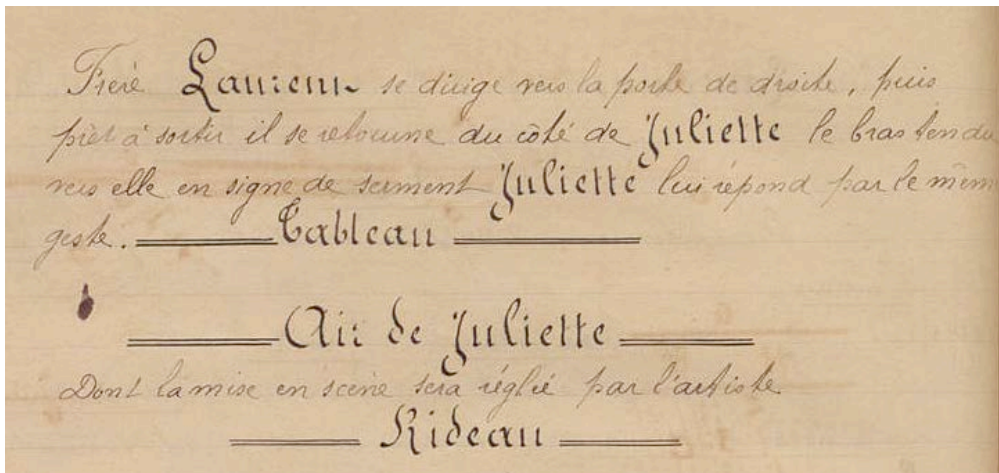 Frère Laurent se dirige vers la porte de droite, puis
prêt à sortir il se retourne du côté de Juliette le bras tendu
vers elle en signe de serment Juliette lui répond par le mêm
geste. Tableau
Air de Juliette
Dont la mise en scène sera réglée par l'artiste
Rideau